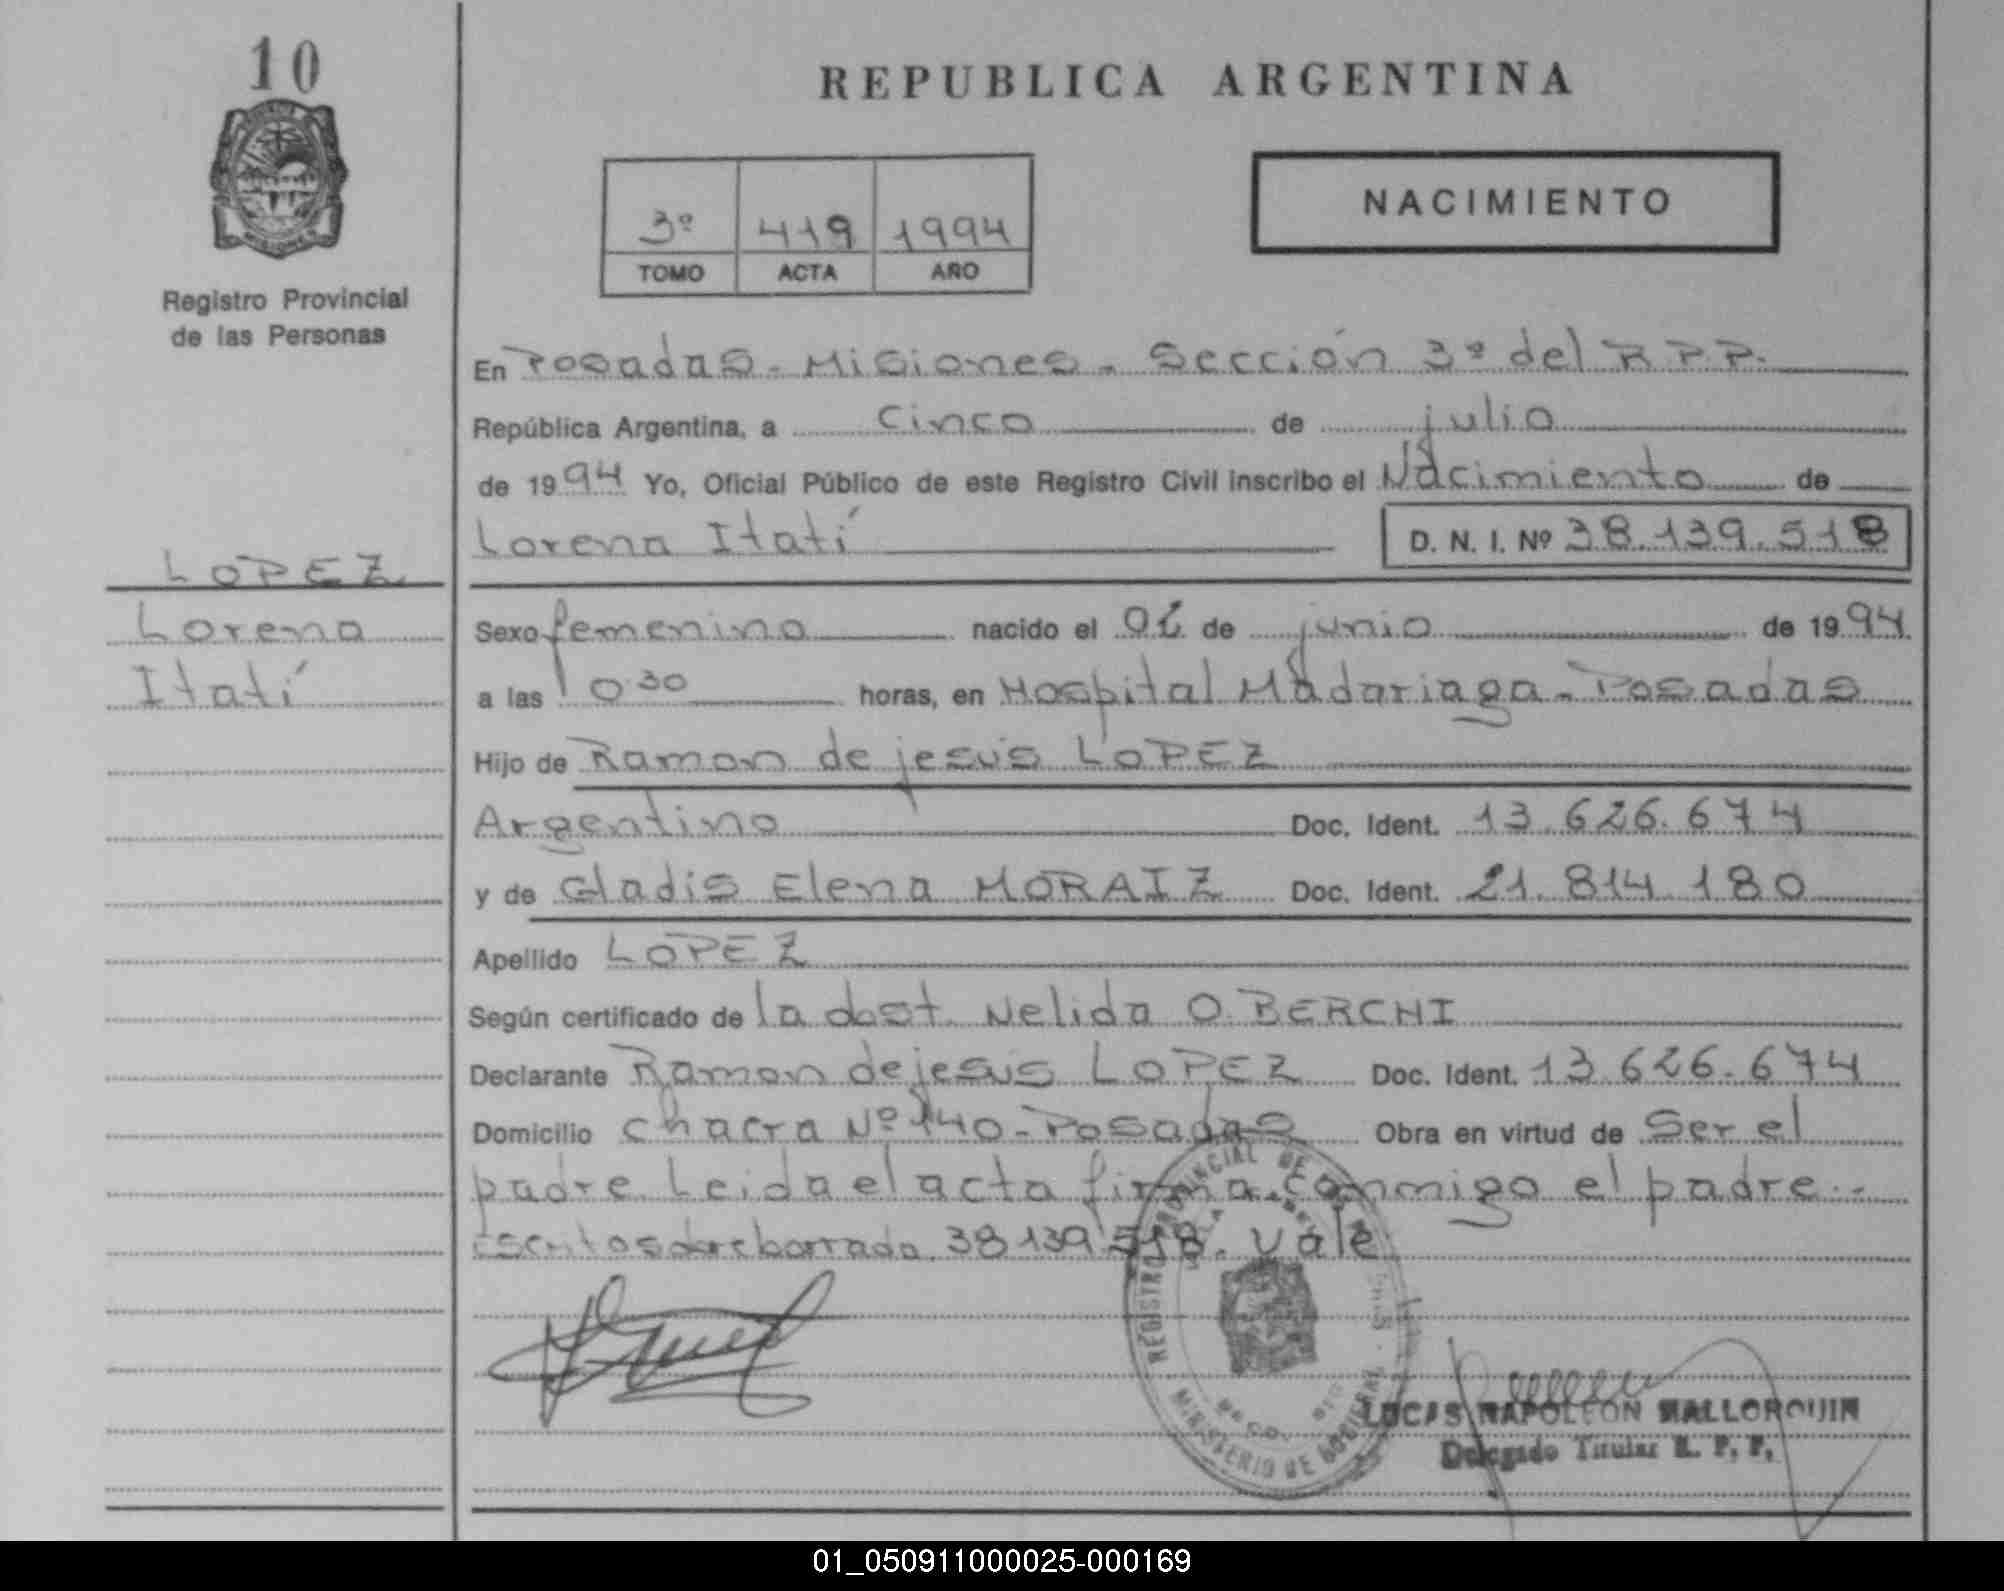 10
Registro Provincial
de las Personas
LOPEZ
Lorena
Itatí
REPUBLICA ARGENTINA
3º 419 1994
TOMO ACTA AÑO
NACIMIENTO
En Posadas - Misiones - Sección 3º del R.P.P.
República Argentina, a cinco de julio
de 1994 Yo, Oficial Público de este Registro Civil inscribo el Nacimiento de
Lorena Itatí D. N. I. Nº 38.139.518
Sexo femenino nacido el 02 de junio de 1994
a las 0 30 horas, en Hospital Madariaga - Posadas
Hijo de Ramon de jesús LOPEZ
Argentino Doc. Ident. 13.626.674
y de Gladis Elena MORAIZ Doc. Ident. 21.814.180
Apellido LOPEZ
Según certificado de la obst. Nelida O. BERCHI
Declarante Ramon de jesús LOPEZ Doc. Ident. 13.626.674
Domicilio chacra Nº 140 - Posadas Obra en virtud de Ser el
padre. Leida el acta firma conmigo el padre.-
Escrito sobre borrado. 38139518. Vale
REGISTRO PROVINCIAL DE
MINISTERIO DE GOBIERNO
LUCAS NAPOLEON MALLORQUIN
Delegado Titular R. P. P.
01_050911000025-000169